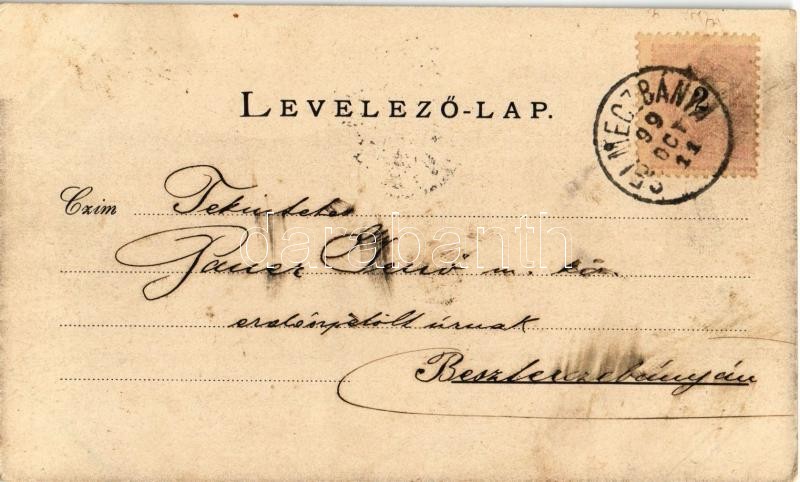 LEVELEZŐ-LAP.
2
SELMECZBÁNYA
99 OCT 11
Czim Tekintetes
Jenő m. kir.
erdőszjelölt úrnak
Beszterczebányán
darabanth